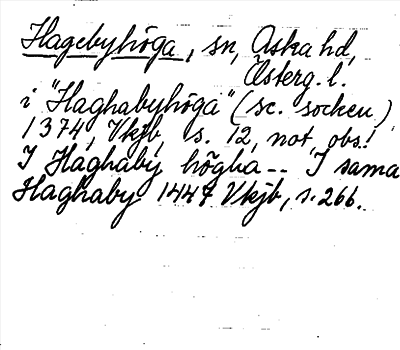 Hagebyhöga, sn, Aska hd,
Österg. l.
i "Haghabyhöga" (sc. socken)
1374, Vkjb, s. 12, not, obs!
I Haghaby högha -- I sama
Haghaby 1447 Vkjb, s. 266.